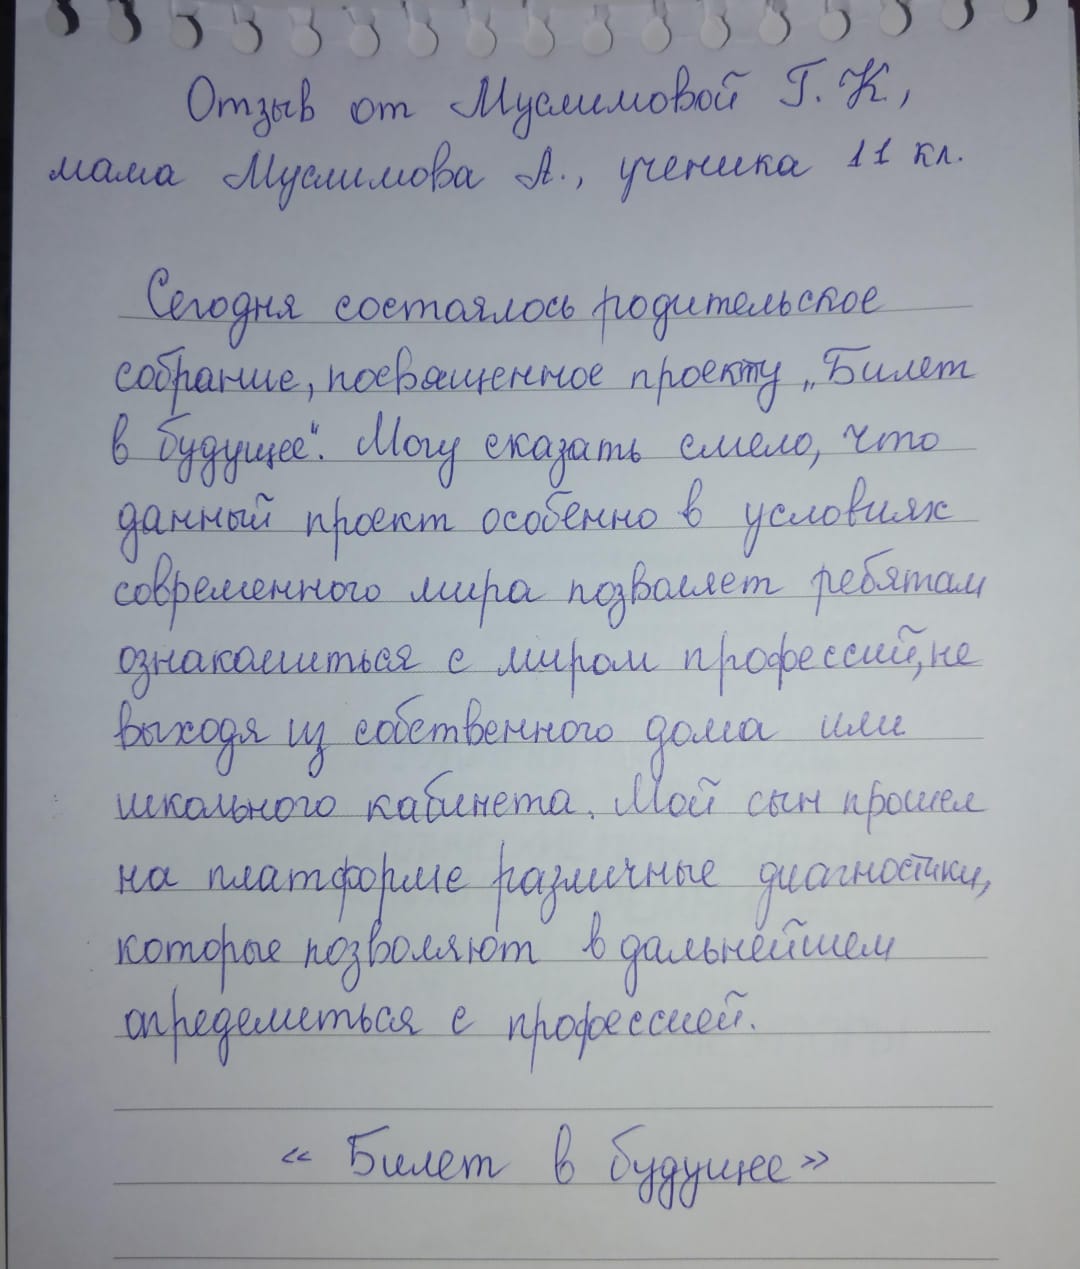 Отзыв от Муслимовой Г. К,
мама Муслимова А., ученика 11 кл.
Сегодня состоялось родительское
собрание, посвященное проекту „Билет
в будущее“. Могу сказать смело, что
данный проект особенно в условиях
современного мира позволяет ребятам
ознакомиться с миром профессий, не
выходя из собственного дома или
школьного кабинета. Мой сын прошел
на платформе различные диагностики,
которые позволяют в дальнейшем
определиться с профессией.
« Билет в будущее»